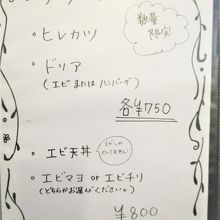 数量
限定
・ヒレカツ
・ドリア
(エビまたはハンバーグ)
各¥750
・エビ天丼
・エビマヨ or エビチリ
(どちらかお選びください。)
¥800